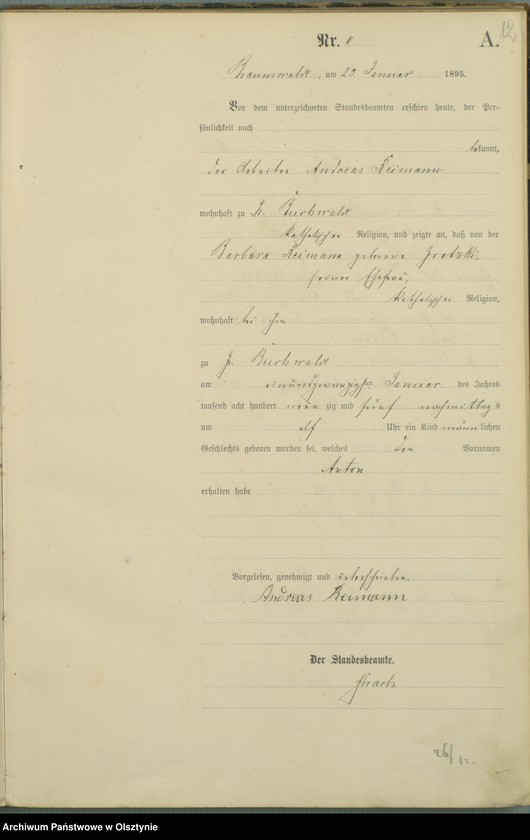 12
Nr. 11 A.
Braunswalde, am 23. Januar 1895.
Vor dem unterzeichneten Standesbeamten erschien heute, der Per-
sönlichkeit nach
bekannt,
der Arbeiter Andreas Reimann
wohnhaft zu Gr. Buchwald
katholischer Religion, und zeigte an, daß von der
Barbara Reimann geborene Grotzki,
seiner Ehefrau,
katholischer Religion,
wohnhaft bei ihm
zu Gr. Buchwald
am einundzwanzigsten Januar des Jahres
tausend acht hundert neun zig und fünf nachmittag s
um elf Uhr ein Kind männ lichen
Geschlechts geboren worden sei, welches den Vornamen
Anton
erhalten habe
Vorgelesen, genehmigt und unterschrieben.
Andreas Reimann
Der Standesbeamte.
26/
Archiwum Państwowe w Olsztynie